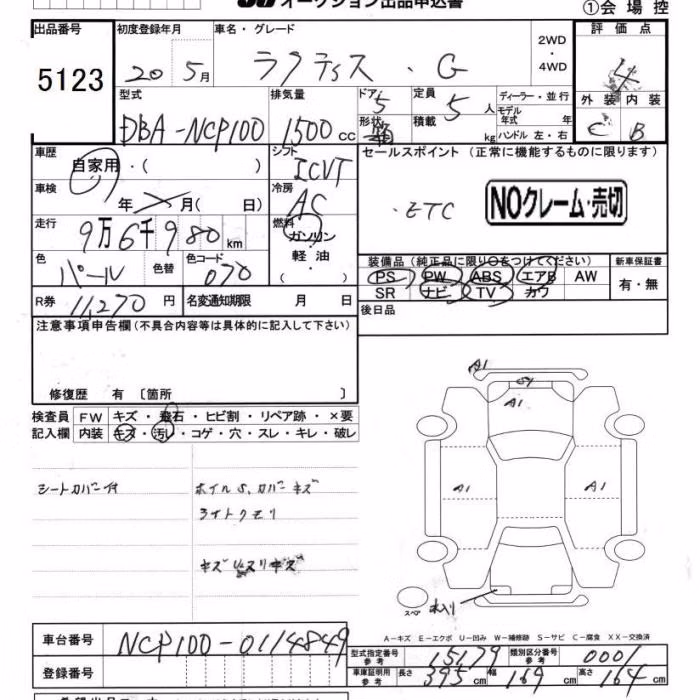 オークション出品申込書
①会場控
出品番号
5123
初度登録年月
20 5月
車名・グレード
ラクティス・G
2WD・4WD
評価点
4
型式
DBA-NCP100
排気量
1500cc
ドア
5
定員
5人
形状
積載
kg
ディーラー・並行
モデル年式 年
ハンドル 左・右
外装 内装
C B
車歴
自家用・( )
シフト
ICVT
セールスポイント(正常に機能するものに限ります)
車検
年 月( 日)
冷房
AC
・ETC
NOクレーム・売切
走行
9万6千980km
燃料
ガソリン
軽油
( )
色
パール
色替
色コード
070
装備品(純正品に限り○をつけてください)
新車保証書
PS PW ABS エアB AW
SR ナビ TV カワ
有・無
R券
11,270円
名変通知期限 月 日
後日品
注意事項申告欄(不具合内容等は具体的に記入して下さい)
修復歴 有〔箇所 〕
検査員
記入欄
FW キズ・飛石・ヒビ割・リペア跡・×要
内装 キズ・汚れ・コゲ・穴・スレ・キレ・破レ
シートカバー付
ホイルS,カバーキズ
ライトクモリ
A1
A1
A1
A1
スペア
A-キズ E-エクボ U-凹み W-補修跡 S-サビ C-腐食 XX-交換済
車台番号
NCP100-0114849
登録番号
型式指定番号
参考
15179
類別区分番号
参考
0001
車庫証明用
参考
長さ 395cm 幅 169cm 高さ 164cm